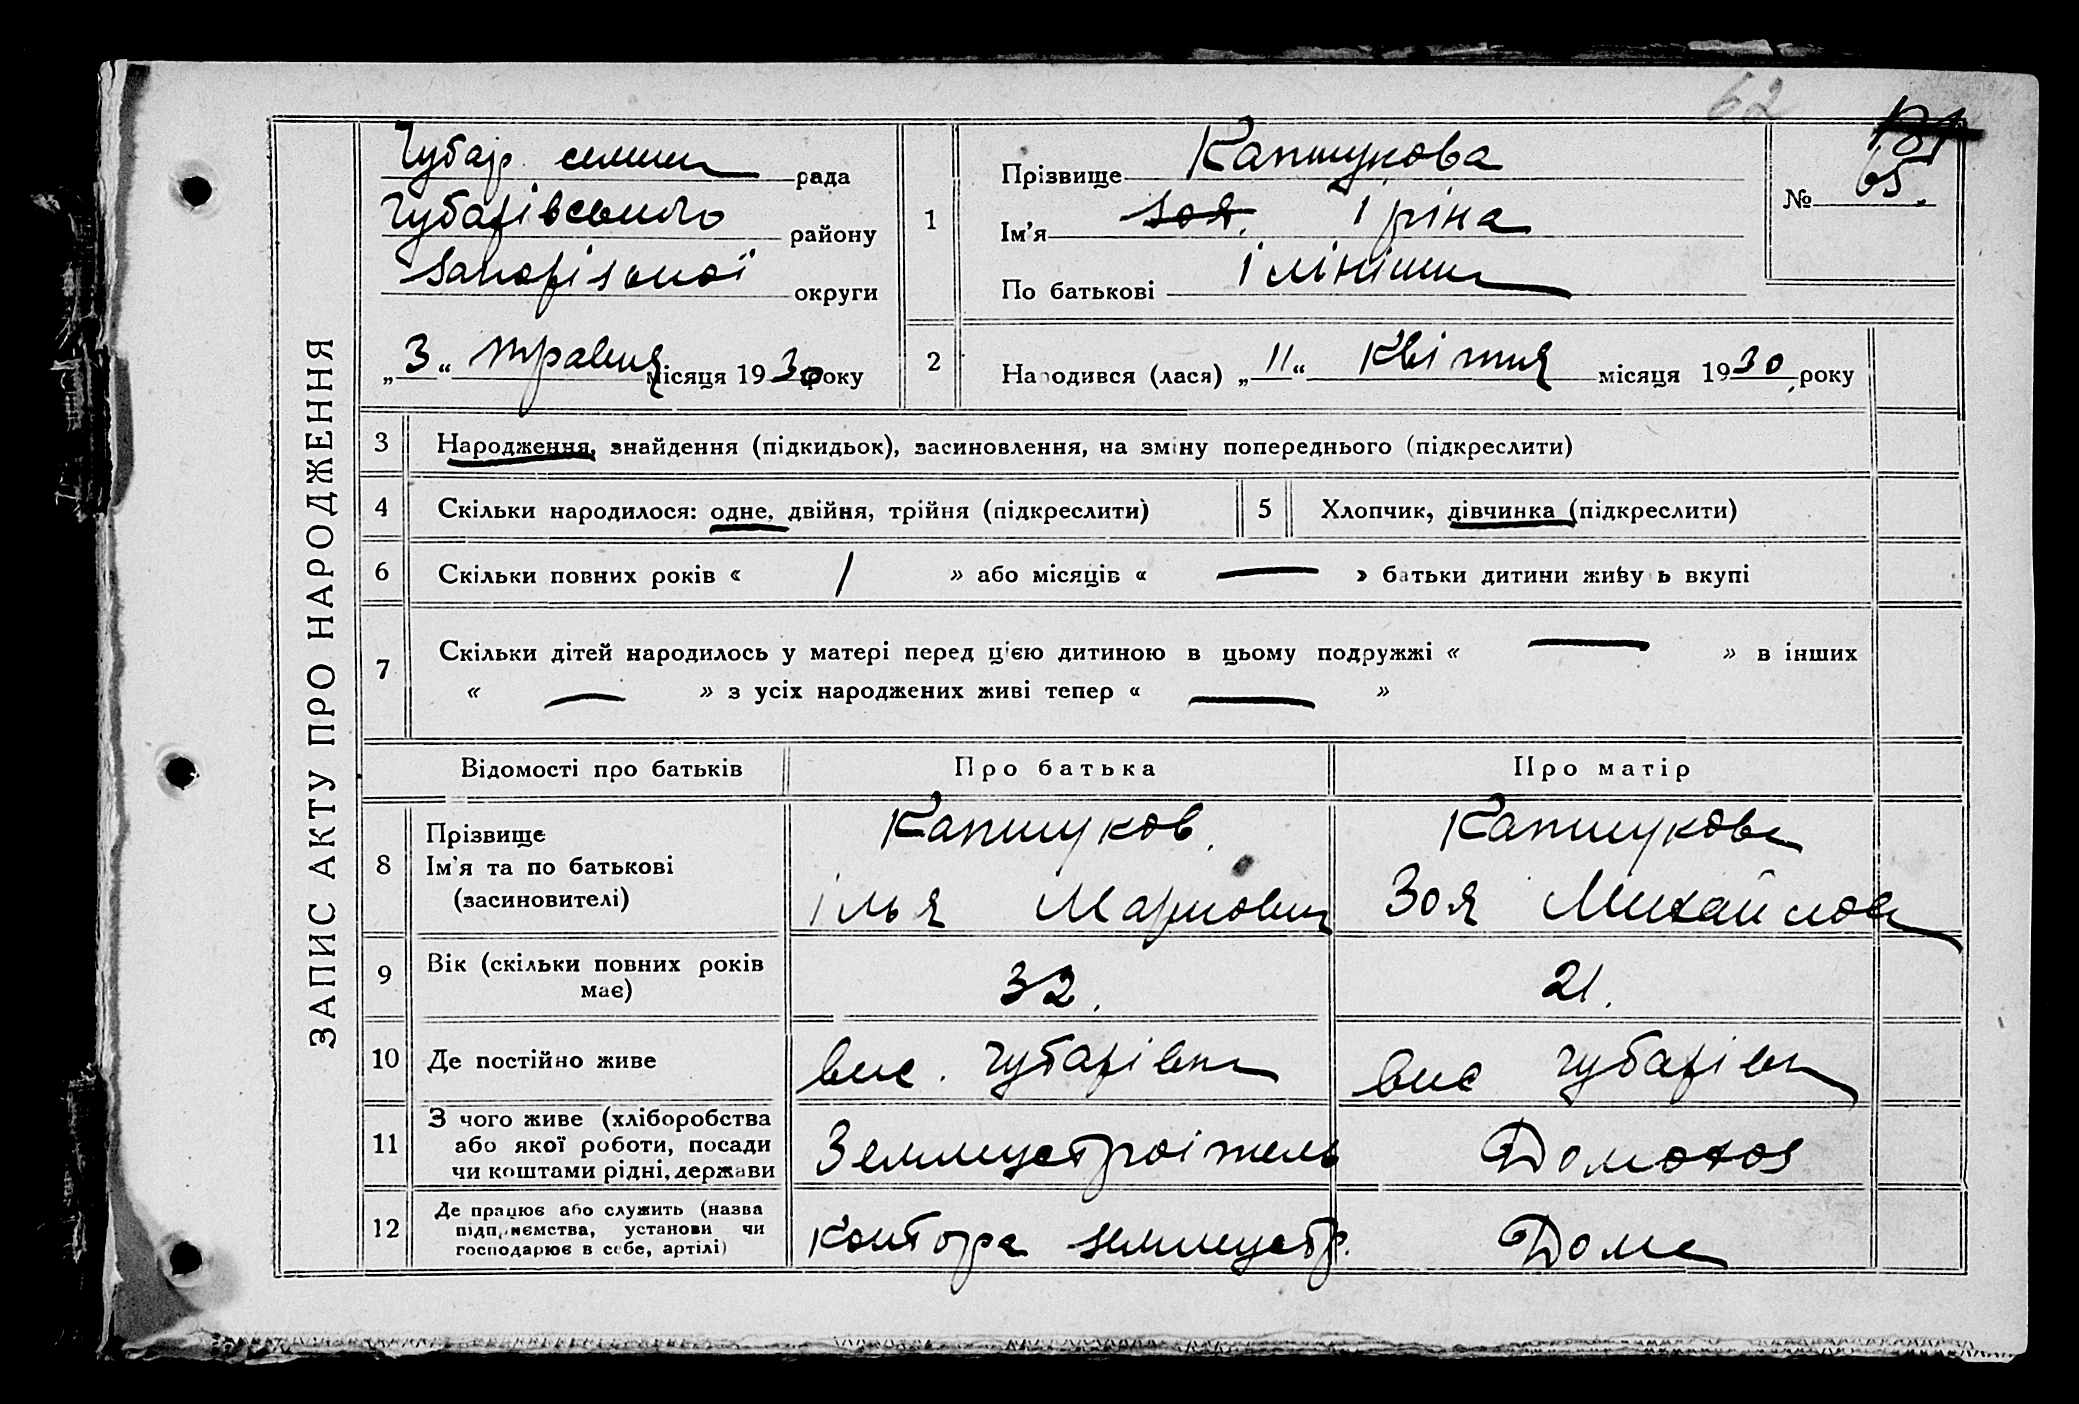 62
ЗАПИС АКТУ ПРО НАРОДЖЕННЯ
Чубар. рада
Чубарівського району
Запорізької округи
„3“ травня місяця 1930 року
1
Прізвище Капшукова
Ім'я Зоя. Іріна
По батькові
№ 65.
2
Народився (лася) „11“ Квітня місяця 1930 року
3 Народження, знайдення (підкидьок), засиновлення, на зміну попереднього (підкреслити)
4 Скільки народилося: одне, двійня, трійня (підкреслити) 5 Хлопчик, дівчинка (підкреслити)
6 Скільки повних років « 1 » або місяців « — » батьки дитини живуть вкупі
7 Скільки дітей народилось у матері перед ц'єю дитиною в цьому подружжі « — » в інших
« — » з усіх народжених живі тепер « — »
Відомості про батьків Про батька Про матір
8 Прізвище
Ім'я та по батькові
(засиновителі)
Капшуков.
Ілья Маркович
Капшукова
Зоя Михайлов
9 Вік (скільки повних років
має)
32. 21.
10 Де постійно живе вис. Чубарівка вис Чубарівка
11 З чого живе (хліборобства
або якої роботи, посади
чи коштами рідні, держави
Землеустроітель Домохоз
12 Де працює або служить (назва
підприємства, установи чи
господарює в себе, артілі)
Контора землеустр. Дома